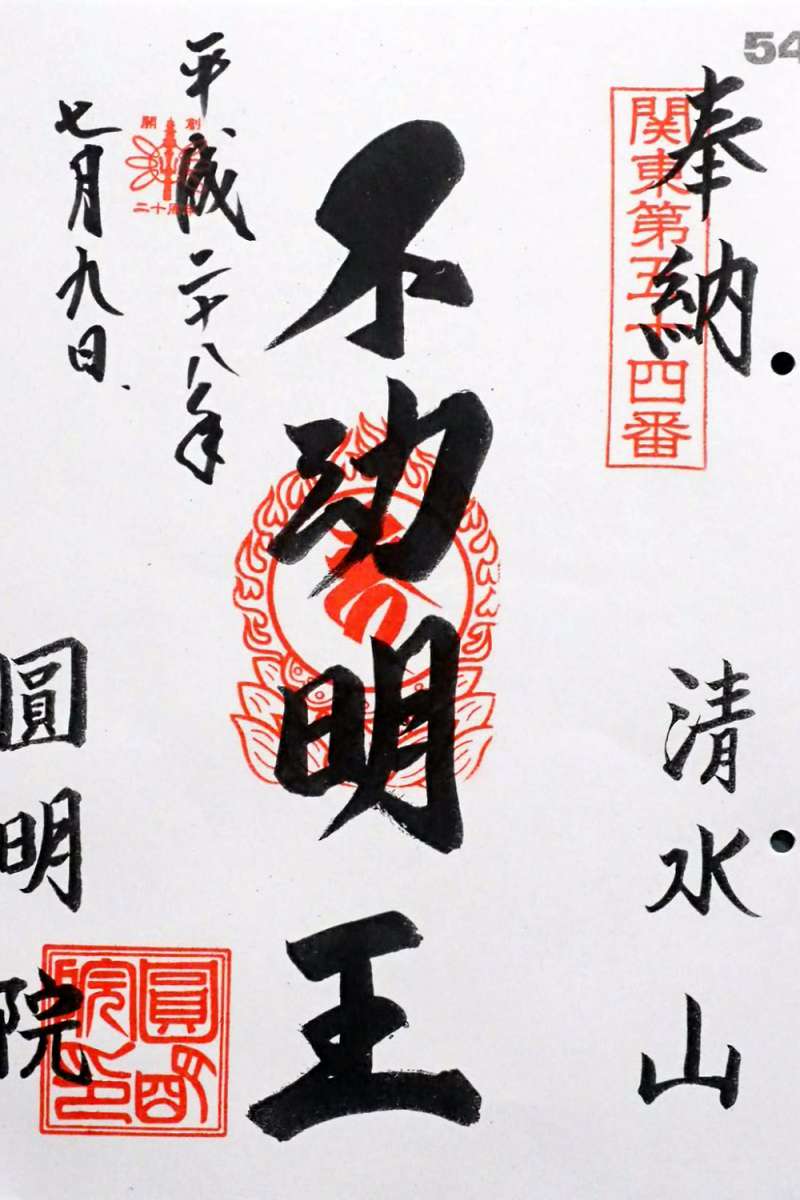 54
奉納 清水山
関東第五十四番
不動明王
平成二十八年
七月九日
開創
二十周年
圓明院
圓明院印